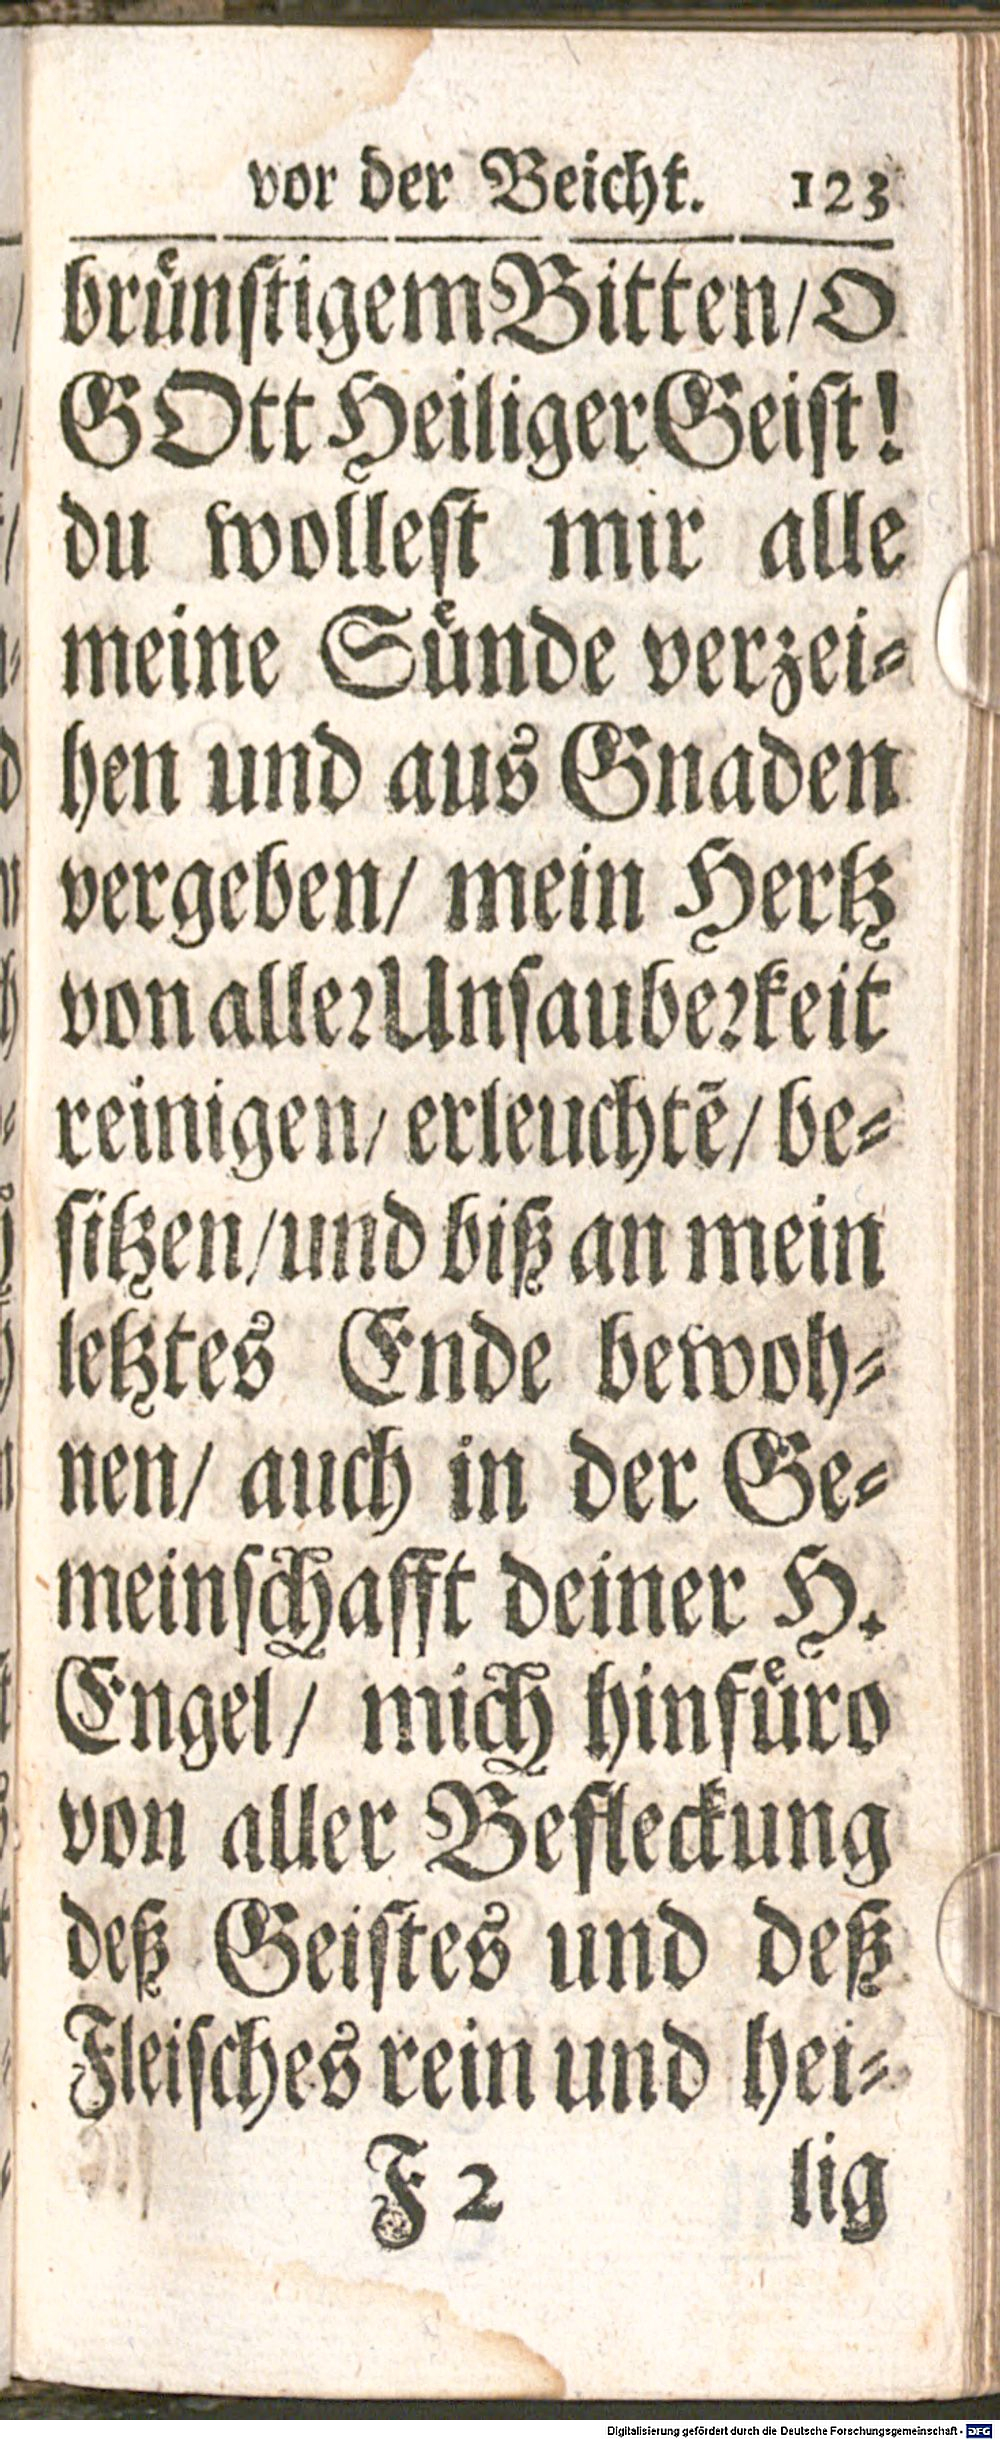 vor der Beicht. 123
brůnſtigem Bitten/ O
GOtt Heiliger Geiſt!
du wolleſt mir alle
meine Sůnde verzei⸗
hen und aus Gnaden
vergeben/ mein Hertz
von alleꝛ Unſaubeꝛkeit
reinigen/ erleuchtẽ/ be⸗
ſitzen/ und biß an mein
letztes Ende bewoh⸗
nen/ auch in der Ge⸗
meinſchafft deiner H.
Engel/ mich hinfůro
von aller Befleckung
deß Geiſtes und deß
Fleiſches rein und hei⸗
F 2 lig
Digitalisierung gefördert durch die Deutsche Forschungsgemeinschaft - DFG